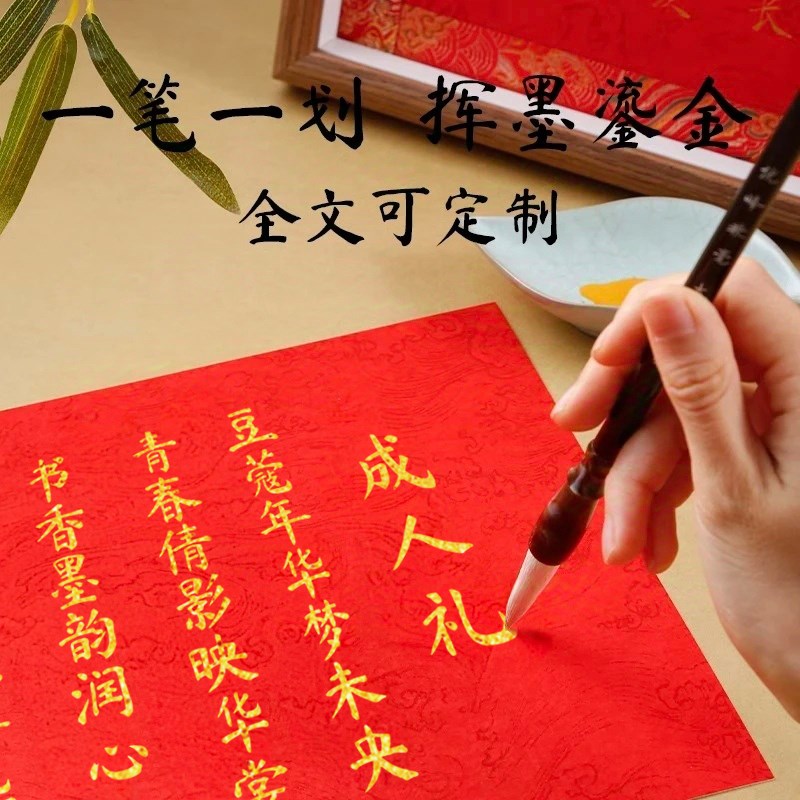 一笔一划 挥墨鎏金
全文可定制
成人礼
豆蔻年华梦未央
青春倩影映华堂
书香墨韵润心